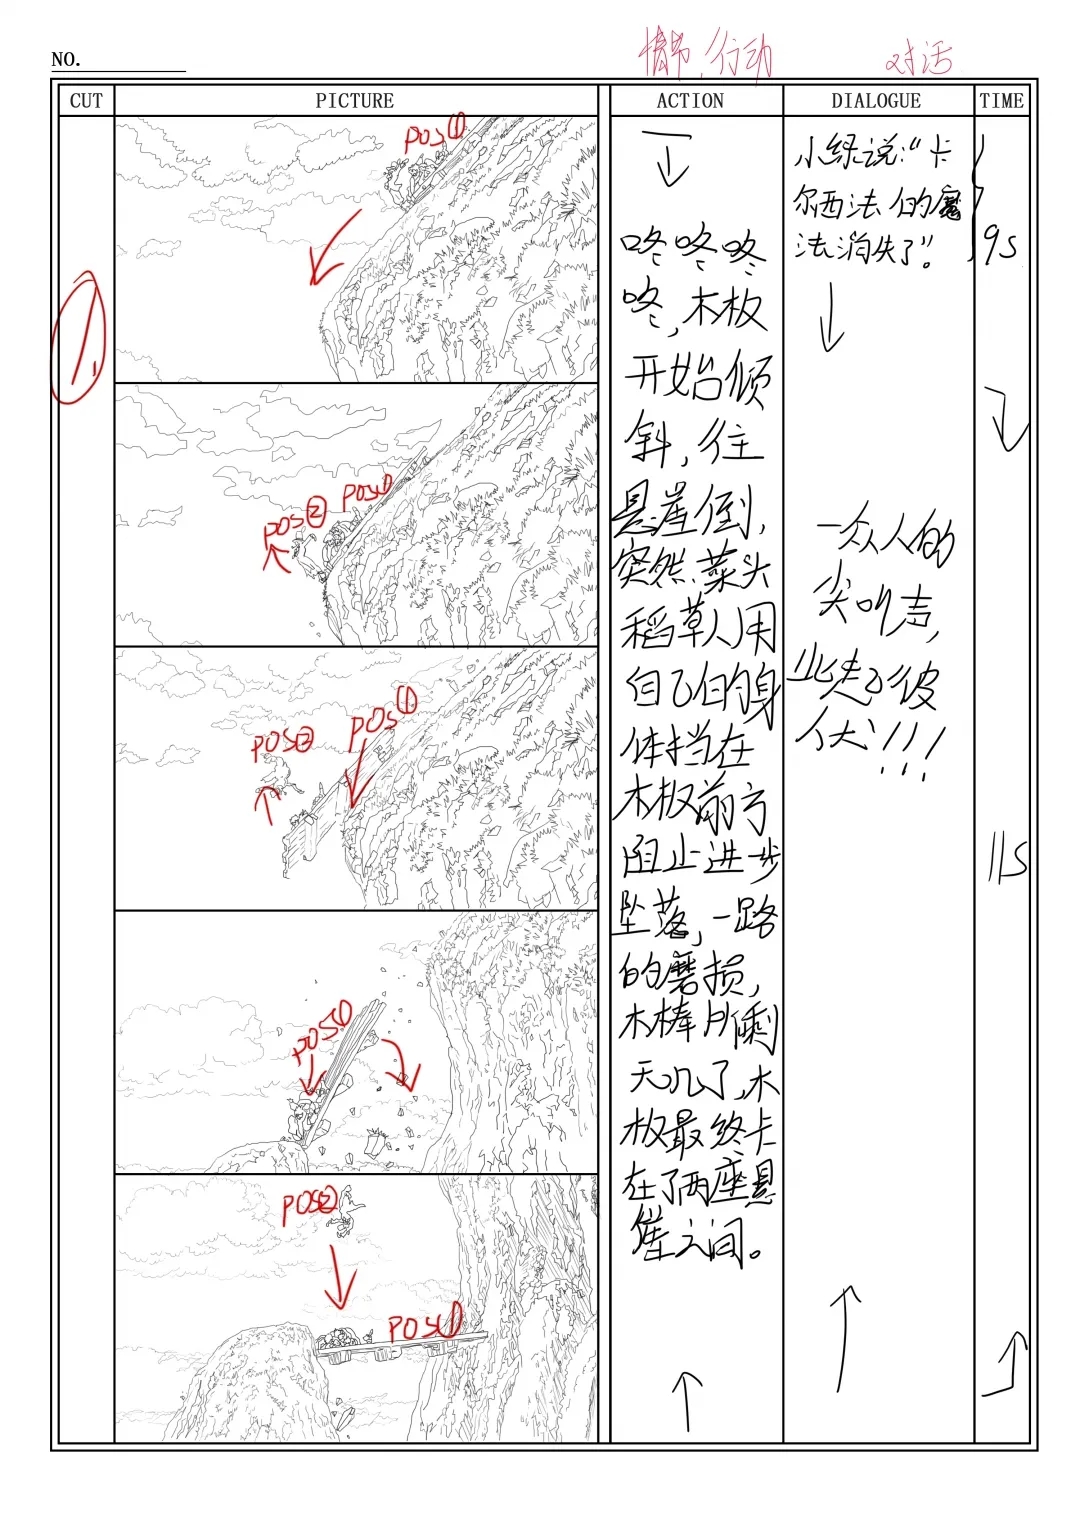 情节,行动
对话
NO.
CUT
PICTURE
ACTION
DIALOGUE
TIME
1.
POS①
POS② POS①
POS②
POS①
POS①
POS②
POS①
咚咚咚
咚,木板
开始倾
斜,往
悬崖倒,
突然,菜头
稻草人用
自己的身
体挡在
木板前方
阻止进步
坠落,一路
的磨损,
木棒所剩
无几了,木
板最终卡
在了两座悬
崖之间。
小绿说:“卡
尔西法的魔
法消失了”。
一众人的
尖叫声,
此起彼
伏!!!
9S
11S